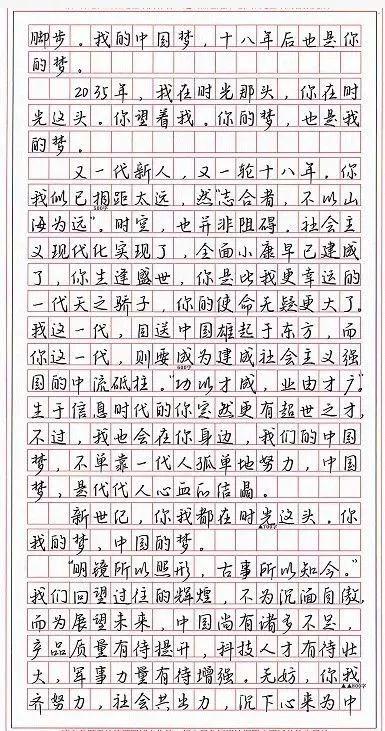 脚步。我的中国梦，十八年后也是你
的梦。
2035年，我在时光那头，你在时
光这头。你望着我。你的梦，也是我
的梦。
又一代新人，又一轮十八年。你
我似已相距太远，然“志合者，不以山
海为远”。时空，也并非阻碍。社会主
义现代化实现了，全面小康早已建成
了，你生逢盛世，你是比我更幸运的
一代天之骄子，你的使命无疑更大了。
我这一代，目送中国雄起于东方，而
你这一代，则要成为建成社会主义强
国的中流砥柱。“功以才成，业由才广”。
生于信息时代的你定然更有超世之才，
不过，我也会在你身边，我们的中国
梦，不单靠一代人孤单地努力，中国
梦，是代代人心血的结晶。
新世纪，你我都在时光这头。你
我的梦，中国的梦。
“明镜所以照形，古事所以知今。”
我们回望过往的辉煌，不为沉湎自傲，
而为展望未来，中国尚有诸多不足，
产品质量有待提升，科技人才有待壮
大，军事力量有待增强。无妨，你我
▲800字
齐努力，社会共出力，沉下心来为中